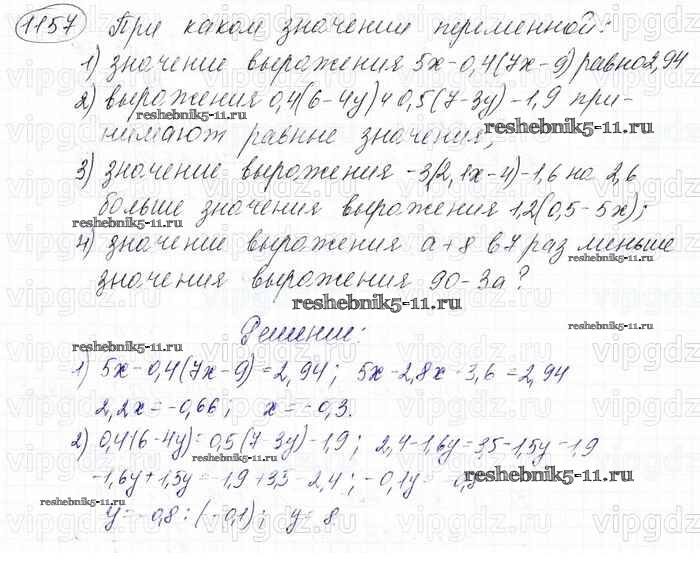 1157 При каком значении переменной:
1) значение выражения 5x-0,4(7x-9) равно 2,94
2) выражения 0,4(6-4y) и 0,5(7-3y)-1,9 при-
нимают равные значения;
reshebnik5-11.ru
reshebnik5-11.ru
3) значение выражения -3(2,1x-4)-1,6 на 2,6
больше значения выражения 1,2(0,5-5x);
reshebnik5-11.ru
4) значение выражения a+8 в 7 раз меньше
значения выражения 90-3a?
reshebnik5-11.ru
Решение:
reshebnik5-11.ru
reshebnik5-11.ru
1) 5x-0,4(7x-9)=2,94; 5x-2,8x-3,6=2,94
2,2x=-0,66; x=-0,3.
2) 0,4(6-4y)=0,5(7-3y)-1,9; 2,4-1,6y=3,5-1,5y-1,9
reshebnik5-11.ru
-1,6y+1,5y=-1,9+3,5-2,4; -0,1y=-0,8
reshebnik5-11.ru
reshebnik5-11.ru
y=-0,8:(-0,1); y=8.